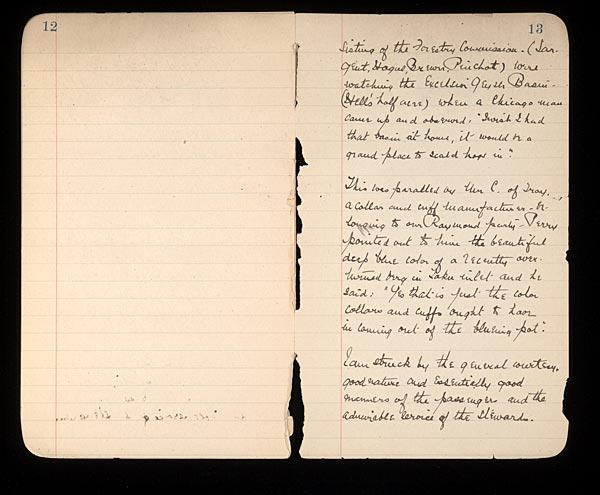 12
13
sisting of the Forestry Commission - (Sar-
gent, Hague, Brewer, Pinchot) were
watching the Excelsior Geyser Basin -
(Hell's half acre) when a Chicago man
came up and observed: "I wish I had
that basin at home, it would be a
grand place to scald hogs in".
This was paralled by Mr C. of Troy,
a collar and cuff manufacturer - be-
longing to our Raymond party - Perry
pointed out to him the beautiful
deep blue color of a recently over-
turned berg in Taku inlet and he
said: "Yes that is just the color
collars and cuffs ought to have
in coming out of the blueing-pot".
I am struck by the general courtesy,
good nature and essentially good
manners of the passengers and the
admirable service of the stewards.